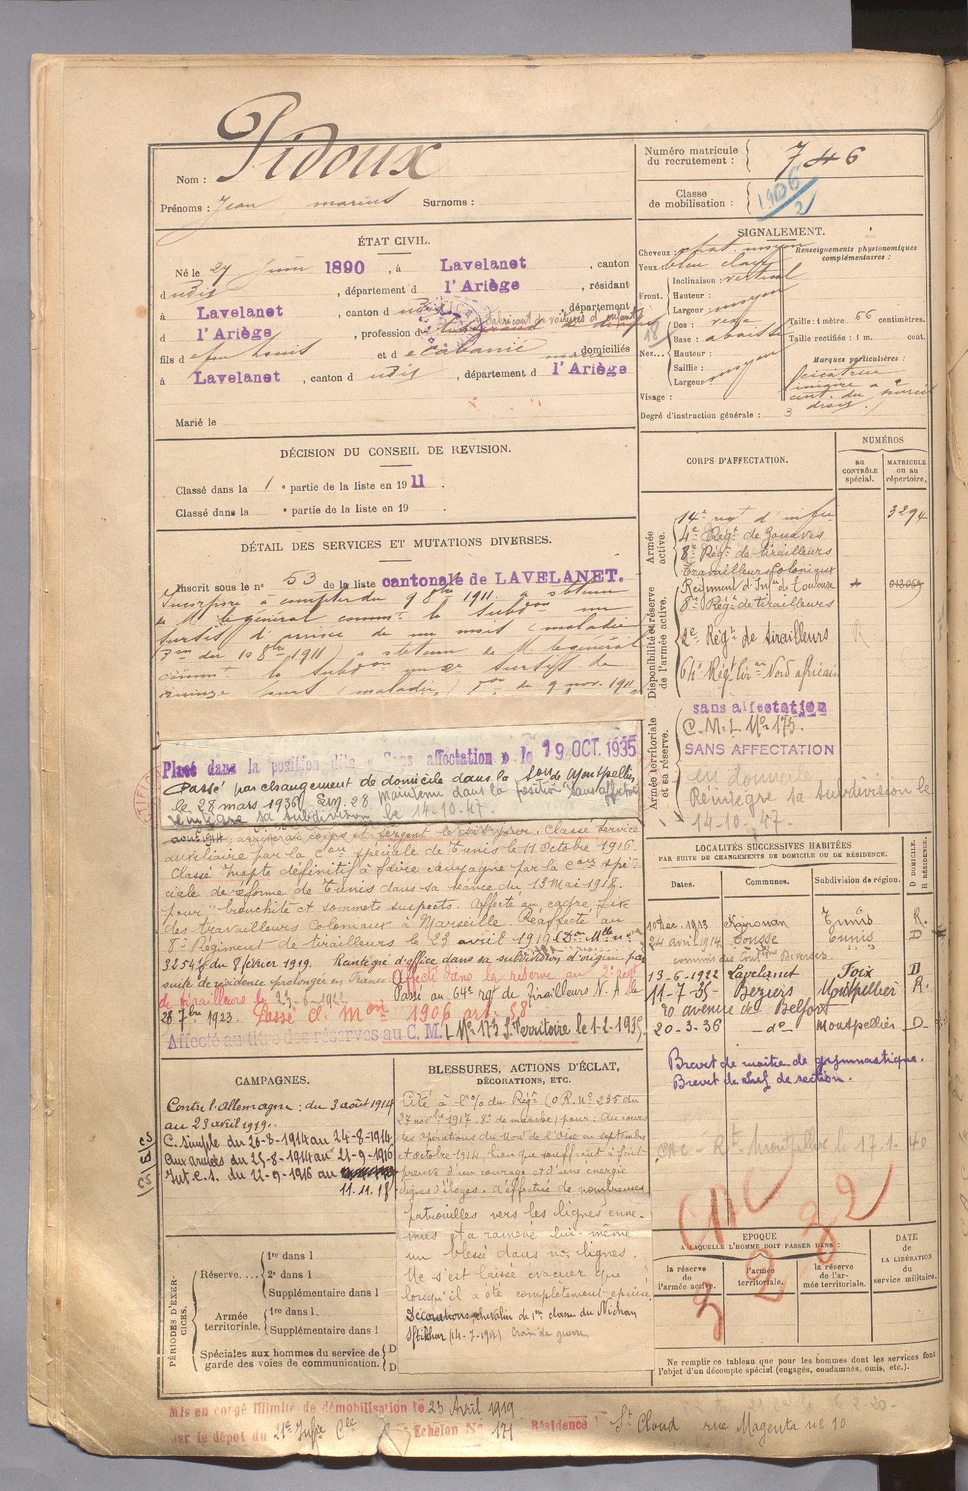 Nom : Pidoux
Prénoms : Jean marius Surnoms :
Numéro matricule du recrutement : 746
Classe de mobilisation : 1906/2
ÉTAT CIVIL.
Né le 27 juin 1890, à Lavelanet, canton
dudit, département d l'Ariège, résidant
à Lavelanet, canton dudit, département
d l'Ariège, profession d fabricant de voitures d'enfants
fils d feu Louis et d domiciliés
à Lavelanet, canton dudit, département d l'Ariège
Marié le
SIGNALEMENT.
Cheveux : chat. moyen
Yeux : bleu clair
Front. Inclinaison : vertical
Hauteur : moyen
Largeur :
Nez... Dos :
Base :
Hauteur : moyen
Saillie :
Largeur :
Visage :
Renseignements physionomiques complémentaires :
Taille : 1 mètre 66 centimètres.
Taille rectifiée : 1 m. cent.
Marques particulières :
cicatrice
droit
Degré d'instruction générale : 3
DÉCISION DU CONSEIL DE REVISION.
Classé dans la 1e partie de la liste en 1911.
Classé dans la e partie de la liste en 19
DÉTAIL DES SERVICES ET MUTATIONS DIVERSES.
Inscrit sous le n° 53 de la liste cantonale de LAVELANET.
Incorporé à compter du 9 8bre 1911. a obtenu
de M. le général commt la subdon un
sursis d'arrivée de un mois (maladie)
Don du 10 8bre 1911) a obtenu de M. le général
commt la subdon un 2e sursis de
quinze jours (maladie) Don du 9 nov. 1911
Placé dans la position dite « Sans affectation » le 19 OCT. 1935
Passé par changement de domicile dans la Son de Montpellier
le 28 mars 1936. maintenu dans la position sans affectation
Réintègre sa subdivision le 14-10-47.
arrivé au corps et sergent le dit jour. Classé service
auxiliaire par la Con spéciale de Tunis le 11 Octobre 1916.
Classé inapte définitif à faire campagne par la Con spé-
ciale de réforme de Tunis dans sa séance du 13 Mai 1918.
pour "bronchite et sommets suspects. Affecté au cadre fixe
des travailleurs coloniaux à Marseille. Réaffecté au
8e Régiment de tirailleurs le 23 avril 1919 (Don Mlle no
3254 du 8 février 1919. Réintégré d'office dans sa subdivision d'origine par
suite de résidence prolongée en France. Affecté dans la réserve au 2e Régt
de tirailleurs le Passé au 64e rgt de Tirailleurs N. A. le
28 7bre 1923. Passé cl. Mon 1906 art. 58
Affecté au titre des réserves au C. M. I. No 173 S. Territoire le 1-2-1935
CORPS D'AFFECTATION.
NUMÉROS
au CONTRÔLE spécial.
MATRICULE ou au répertoire.
Armée active.
14e regt d'infie 3294
4e Régt de Zouaves
8e Régt de tirailleurs
Travailleurs Coloniaux
Disponibilité et réserve de l'armée active.
Régiment d'Infie de Toulouse
8e Régt de tirailleurs
2e Régt de tirailleurs
64e Régt tirrs Nord africain
Armée territoriale et sa réserve.
sans affectation
C. M. I. No 175.
SANS AFFECTATION
Réintègre sa subdivision le
14-10-47.
LOCALITÉS SUCCESSIVES HABITÉES
PAR SUITE DE CHANGEMENTS DE DOMICILE OU DE RÉSIDENCE.
Dates. Communes. Subdivision de région. D DOMICILE. R RÉSIDENCE.
10 Dec. 1913 Kairouan Tunis R.
24 avril 1914 Sousse Tunis D
commis des Contons Diverses
13-6-1922 Lavelanet Foix D
11-7-35 Beziers Montpellier R.
70 avenue de Belfort
20-3-36 do Montpellier D
Brevet de maître de gymnastique.
Brevet de chef de section.
CAC Montpellier le 17.1.40
CAC
3232
CAMPAGNES.
Contre l'Allemagne : du 3 août 1914
au 23 avril 1919.
C. simple du 20-8-1914 au 24-8-1914
aux armées du 25-8-1914 au 21-9-1916
Int. C.S. du 22-9-1916 au
11.11.18
BLESSURES, ACTIONS D'ÉCLAT,
DÉCORATIONS, ETC.
Cité à l'O/ du Régt (O.R. No 235 du
27 novbre 1917. 8e de marche) pour : Au cours
des opérations du Nord de l'Oise en septembre
et octobre 1914, bien que souffrant a fait
preuve d'un courage et d'une énergie
dignes d'éloges. d'effectué de nombreuses
patrouilles vers les lignes enne-
mies et a ramené lui-même
un blessé dans nos lignes.
Ne s'est laissé évacuer que
lorsqu'il a été complètement épuisé.
Décorations chevalier de 1re classe du Nichan
Iftikhar (14-7-19) Croix de guerre
PÉRIODES D'EXERCICES.
Réserve.... 1re dans l
2e dans l
Supplémentaire dans l
Armée territoriale. 1re dans l
Supplémentaire dans l
Spéciales aux hommes du service de garde des voies de communication. D D
EPOQUE
A LAQUELLE L'HOMME DOIT PASSER DANS :
la réserve de l'armée active.
l'armée territoriale.
la réserve de l'armée territoriale.
DATE de LA LIBÉRATION du service militaire.
Ne remplir ce tableau que pour les hommes dont les services font
l'objet d'un décompte spécial (engagés, condamnés, omis, etc.).
Mis en congé illimité de démobilisation le 23 Avril 1919
par le dépôt du 21e Infie Cle Echelon No 171 Résidence St Cloud rue Magenta no 10